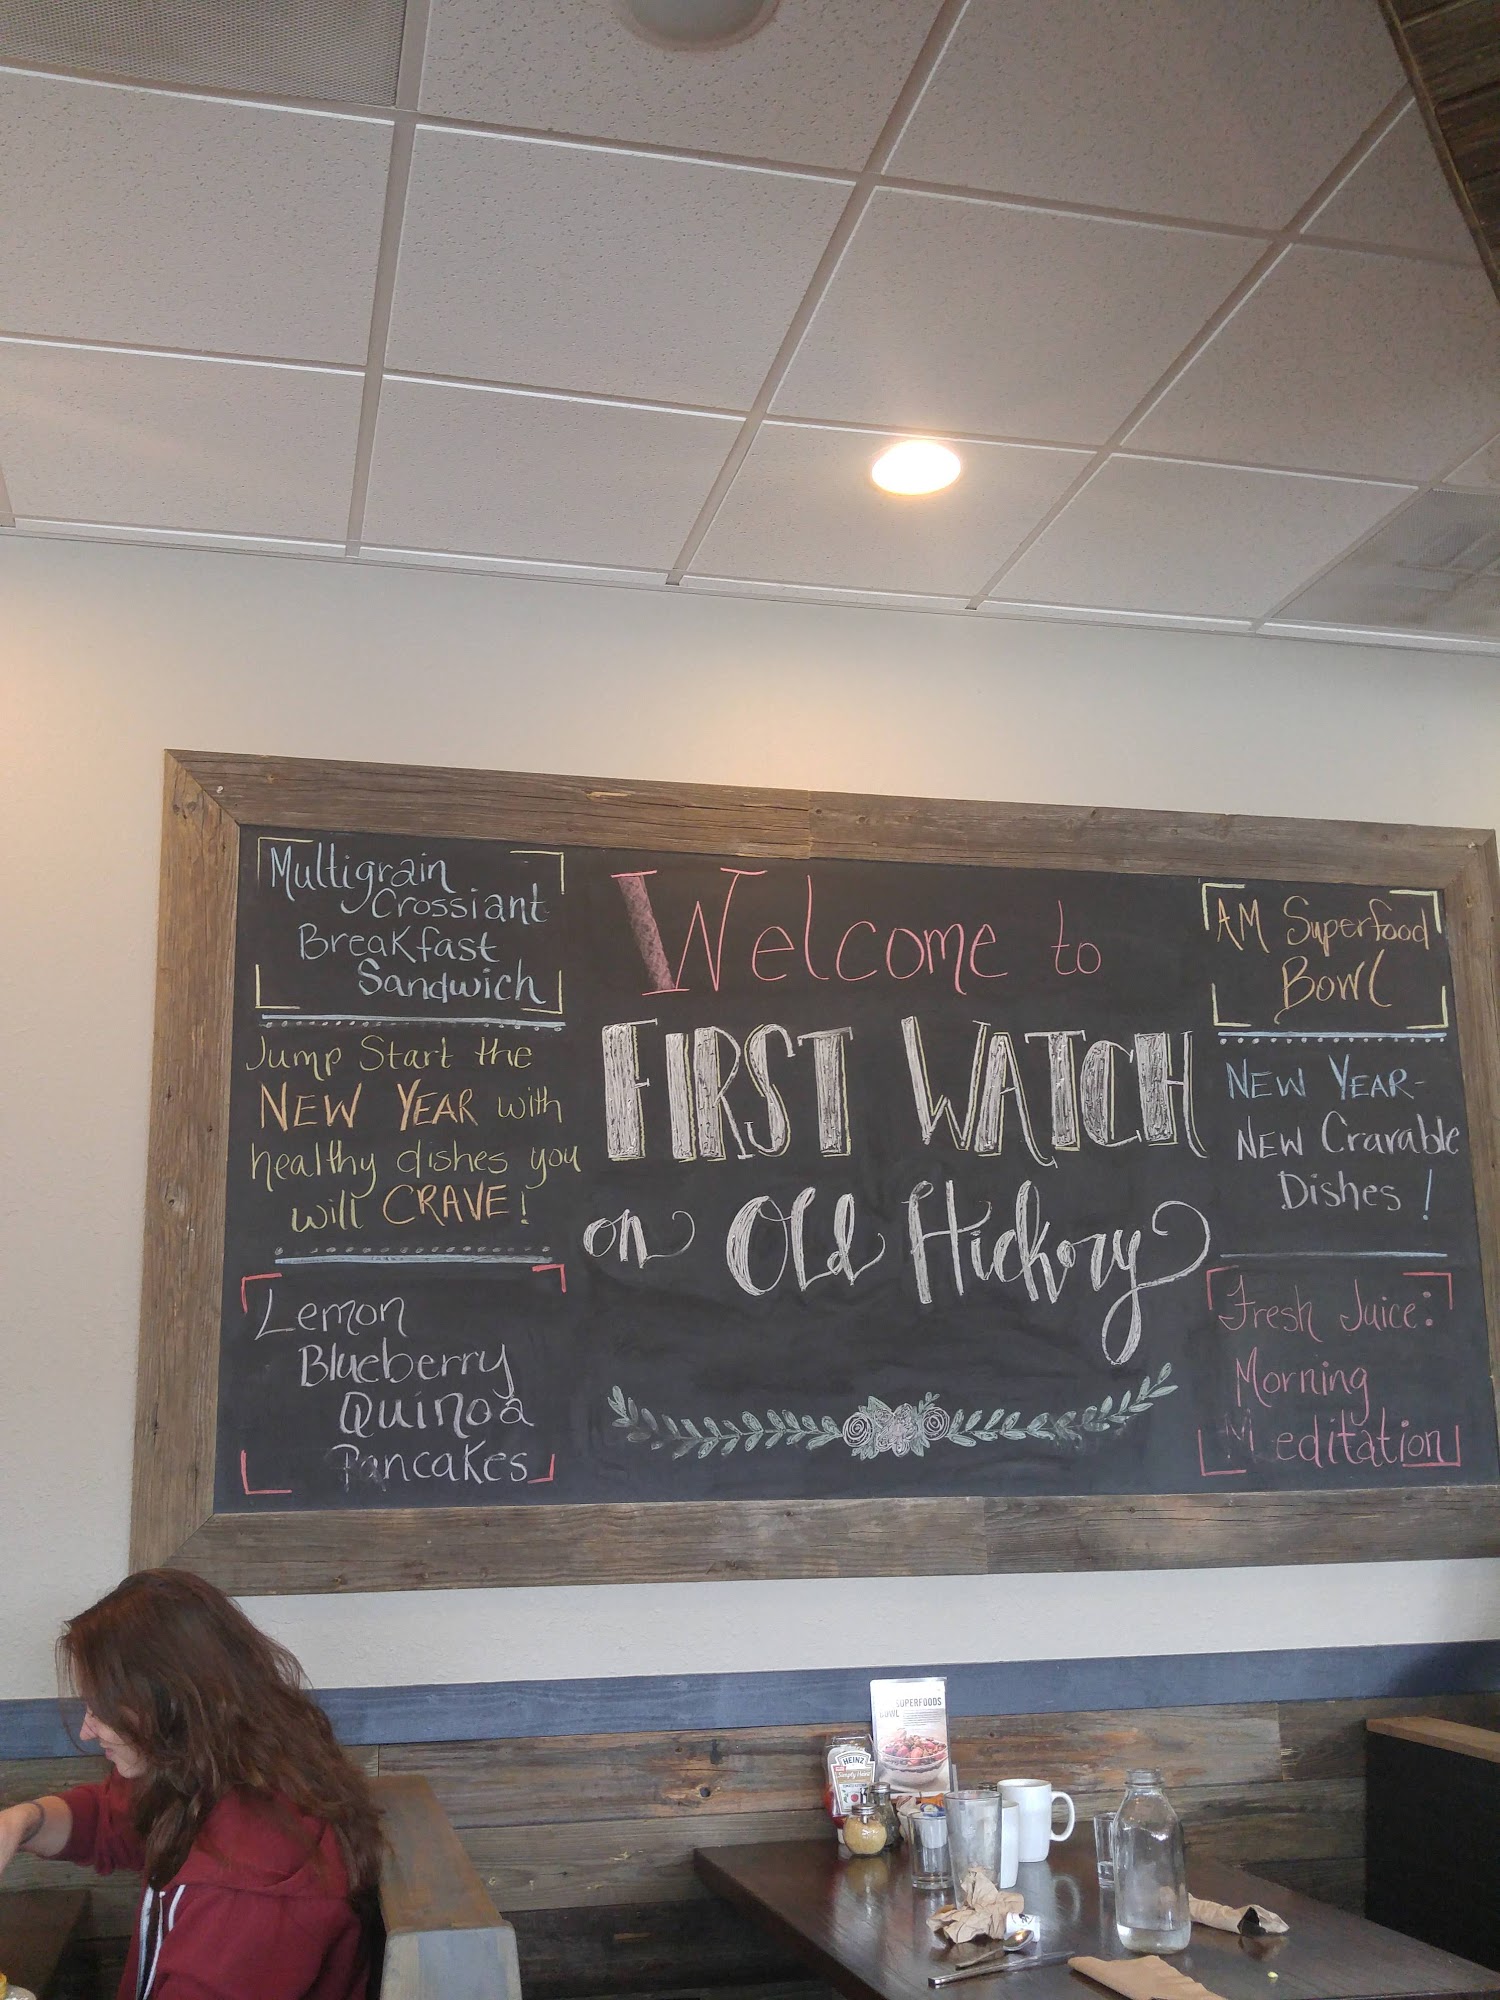 Multigrain
Crossiant
Breakfast
Sandwich
Jump Start the
NEW YEAR with
healthy dishes you
will CRAVE!
Lemon
Blueberry
Quinoa
Pancakes
Welcome to
FIRST WATCH
on Old Hickory
AM Superfood
Bowl
NEW YEAR-
NEW Cravable
Dishes!
Fresh Juice:
Morning
Meditation
SUPERFOODS
BOWL
HEINZ
Simply Heinz